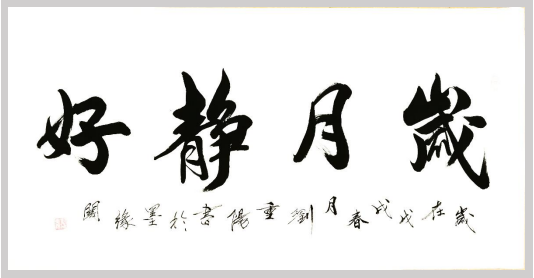 歲月静好
歲在戊戌春月劉重陽書於墨緣閣